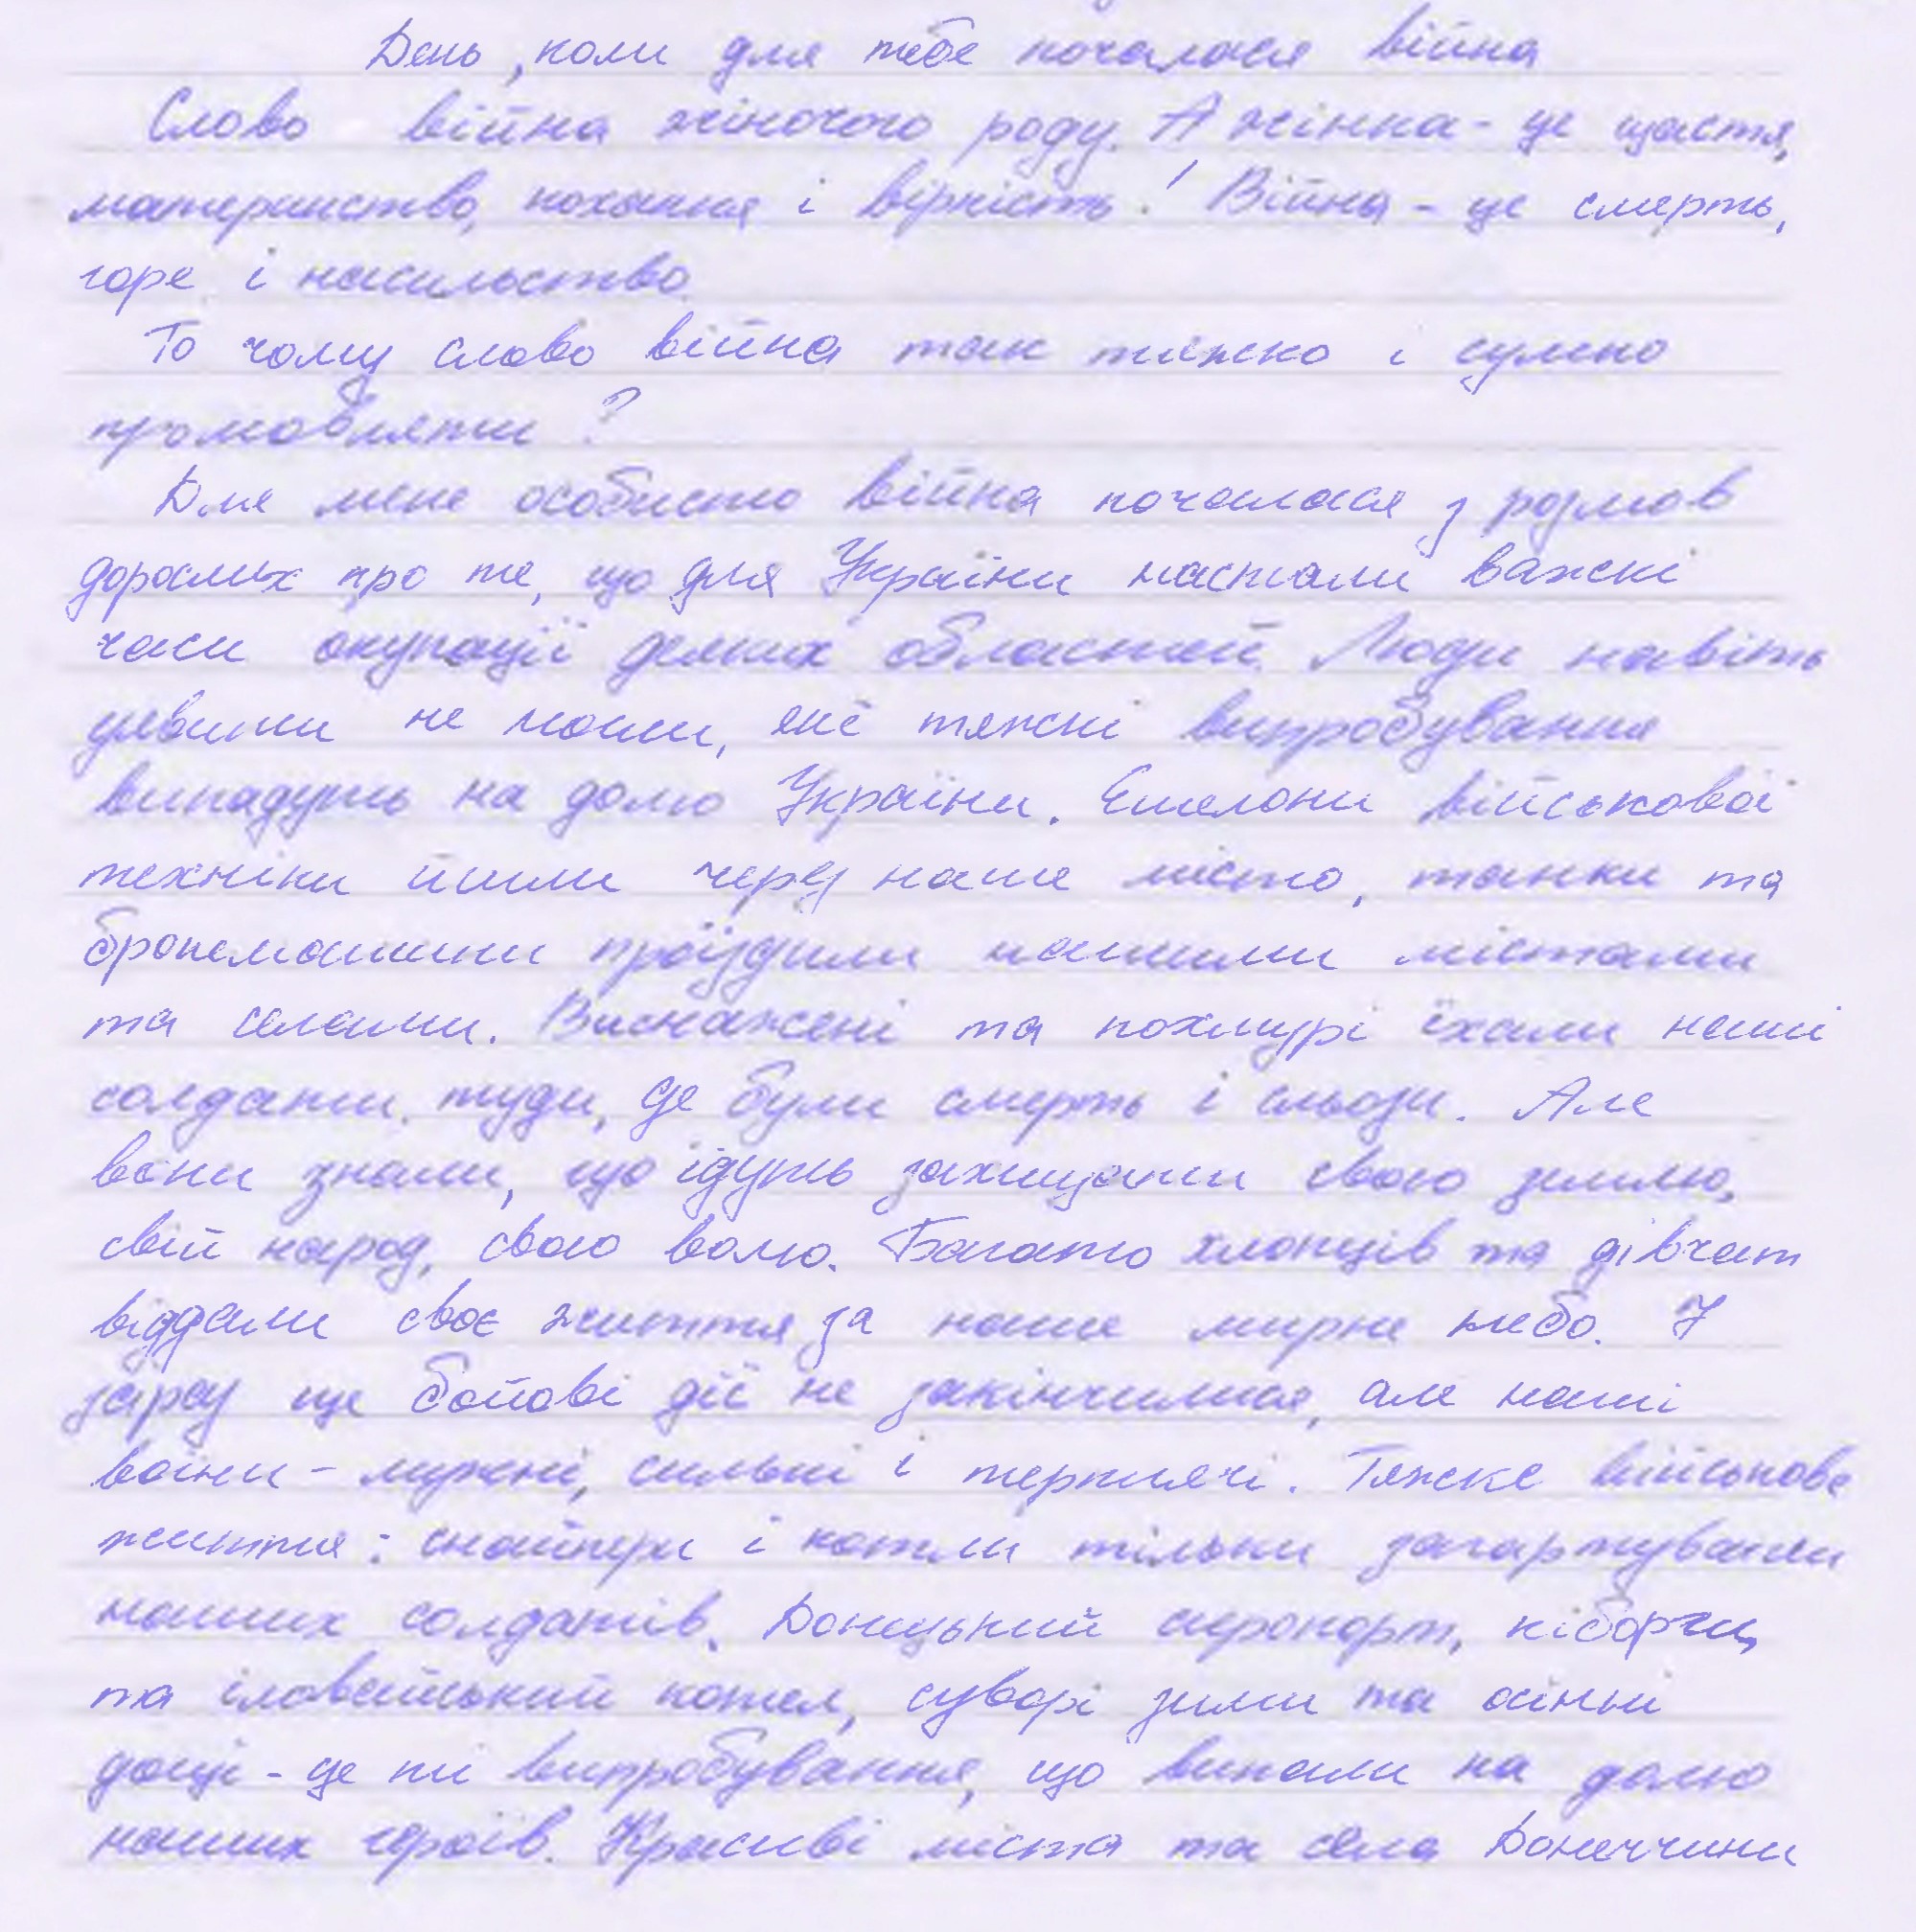 День, коли для тебе почалася війна
Слово війна жіночого роду. А жінка - це щастя,
материнство, кохання і вірність! Війна - це смерть,
горе і насильство.
То чому слово війна так тяжко і сумно
промовляти?
Для мене особисто війна почалася з розмов
дорослих про те, що для України настали важкі
часи окупації деяких областей. Люди навіть
уявити не могли, які тяжкі випробування
випадуть на долю України. Ешелони військової
техніки йшли через наше місто, танки та
бронемашини проїздили нашими містами
та селами. Виснажені та похмурі їхали наші
солдати туди, де були смерть і сльози. Але
вони знали, що ідуть захищати свою землю,
свій народ, свою волю. Багато хлопців та дівчат
віддали своє життя за наше мирне небо. І
зараз ще бойові дії не закінчилися, але наші
воїни - мужні, сильні і терплячі. Тяжке військове
життя: снайпери і котли тільки загартували
наших солдатів. Донецький аеропорт, кіборги,
та іловайський котел, суворі зими та осінні
дощі - це ті випробування, що випали на долю
наших героїв. Красиві міста та села Донеччини